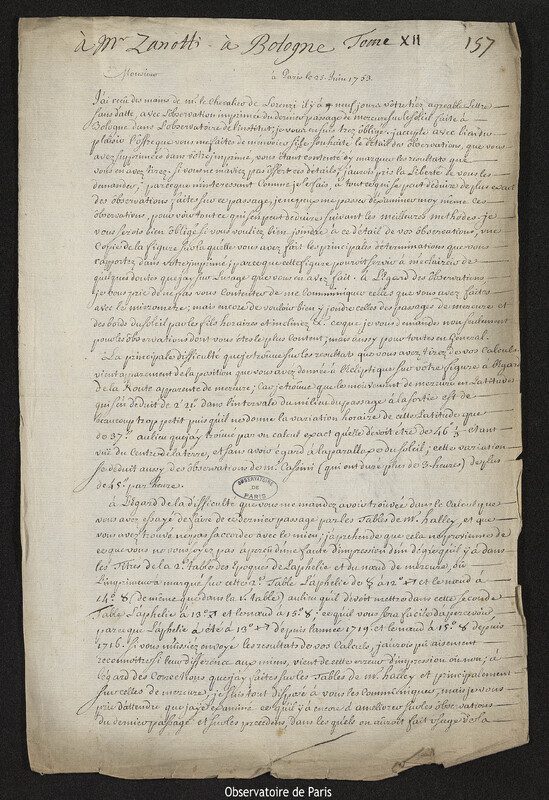 à Mr Zanotti à Bologne Tome XII 157
Monsieur à Paris le 25 Juin 1753.
J'ai receu des mains de mr. le Chevalier de Lorenzi il y a neuf jours votre trez agreable Lettre
sans datte, avec L'observation imprimée du dernier passage de mercure sur le soleil faite à
Bologne dans L'observatoire de l'institut; je vous en suis trez obligé. j'accepte avec bien du
plaisir L'offre que vous me faites de m'envoier si je souhaite le detail des observations, que vous
avez supprimées dans votre imprimé, vous etant contenté d'y marquer les resultats que
vous en avez tirez. si vous ne m'aviez pas offert ces details, j'aurois pris la Liberté de vous les
demander; parceque m'interessant comme je le fais, à tout ce qui se peut deduire de plus exact
des observations faites sur ce passage, je ne puis me passer d'examiner moy même ces
observations, pour voir tout ce qui s'en peut deduire suivant les meilleures methodes. je
vous serois bien obligé si vous vouliez bien joindre à ce détail de vos observations, une
Copie de la figure sur laquelle vous avez fait les principales determinations que vous
rapportez dans votre imprimé; parceque cette figure pourroit servir à m'eclaircir de
quelques doutes que j'ay sur L'usage que vous en avez fait. à L'Egard des observations
je vous prie de ne pas vous contenter de me communiquer celles que vous avez faites
avec le micrometre; mais encore de vouloir bien y joindre celles des passages de mercure et
des bords du soleil par les fils horaires et inclinez &c. ce que je vous demande non seulement
pour les observations dont vous etes le plus content; mais aussy pour toutes en General.
La principale difficulté que je trouve sur les resultats que vous avez tirez de vos Calculs
vient apparemment de la position que vous avez donnée à l'Ecliptique sur votre figure à l'Egard
de la Route apparente de mercure; Car je trouve que le mouvement de mercure en Latitude
qui s'en déduit de 2' 21" dans l'intervale du milieu du passage à la sortie est de
beaucoup trop petit puis qu'il ne donne la variation horaire de cette Latitude que
de 37" au lieu que j'ay trouvé par un calcul exact qu'elle devoit etre de 46" ⅓ etant
vue du Centre de la terre, et sans avoir égard à la parallaxe du soleil; cette variation
se deduit aussy des observations de mr. Cassini (qui ont duré plus de 3 heures) de plus
de 45" par heure.
OBSERVATOIRE DE PARIS
à L'Egard de la difficulté que vous me mandez avoir trouvée dans le Calcul que
vous avez essayé de faire de ce dernier passage par les Tables de mr. halley, et que
vous avez trouvé ne pas s'accorder avec le mien; j'apprehende que cela ne provienne de
ce que vous ne vous soyez pas aperceu d'une faute d'impression d'un degré qu'il y a dans
les Titres de la 2e. table des Epoques de L'aphelie et du nœud de mercure, où
L'imprimeur a marqué sur cette 2e. Table L'aphelie de ☿ à 12° ♐ et le nœud à
14° ♉ (de meme que dans la 1e. table) au lieu qu'il devoit mettre dans cette seconde
Table L'aphelie à 13° ♐ et le nœud à 15° ♉; ce qu'il vous sera facile d'apercevoir
parceque L'aphelie à été à 13° ♐ depuis l'année 1719. et le nœud à 15° ♉ depuis
1716. si vous m'aviez envoyé les resultats de vos Calculs, j'aurois pu aisement
reconnoitre si leur difference aux miens, vient de cette erreur d'impression ou non; à
L'égard des Corrections que j'ay faites sur les Tables de mr. halley et principalement
sur celles de mercure, je suis tout disposé à vous les communiquer, mais je vous
prie d'attendre que j'aye examiné ce qu'il y a encore à ameliorer sur les observations
du dernier passage et sur les precedens, dans les quels on auroit fait usage de la
Observatoire de Paris